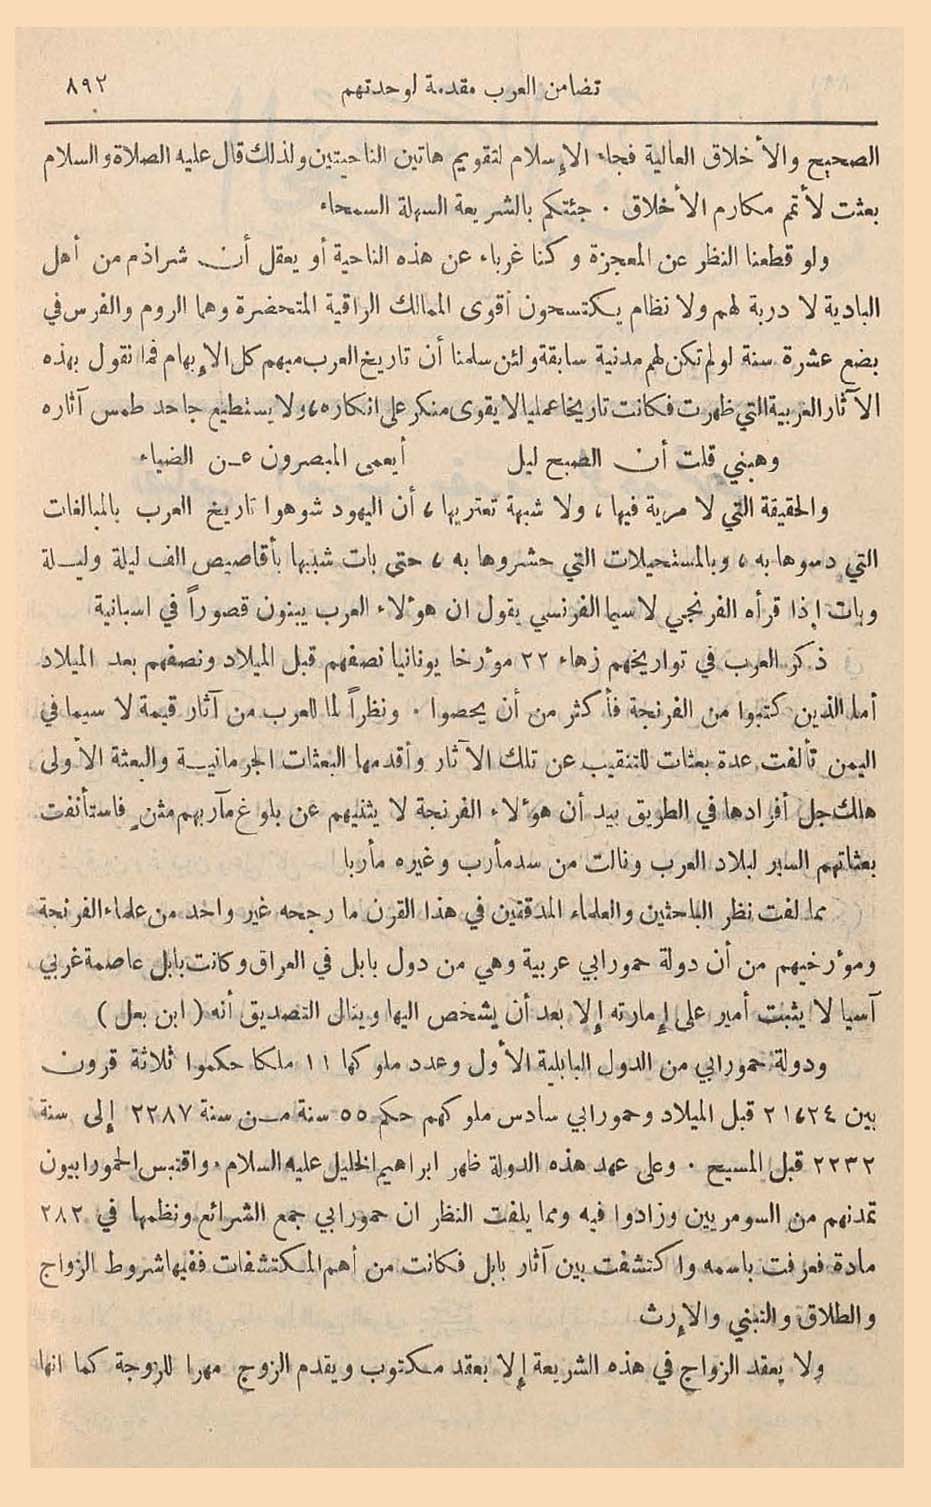 تضامن العرب مقدمة لوحدتهم ٨٩٢
الصحيح والأخلاق العالية فجاء الإسلام لتقويم هاتين الناحيتين ولذلك قال عليه الصلاة والسلام
بعثت لأتمم مكارم الأخلاق . جئتكم بالشريعة السهلة السمحاء
ولو قطعنا النظر عن المعجزة وكنا غرباء عن هذه الناحية أو يعقل أن شراذم من أهل
البادية لا دربة لهم ولا نظام يكتسحون أقوى الممالك الراقية المتحضرة وهما الروم والفرس في
بضع عشرة سنة لو لم تكن لهم مدنية سابقة ولئن سلمنا أن تاريخ العرب مبهم كل الإبهام فما نقول بهذه
الآثار الغريبة التي ظهرت فكانت تاريخا عمليا لا يقوى منكر على انكاره ، ولا يستطيع جاحد طمس آثاره
وهبني قلت أن الصبح ليل أيعمى المبصرون عن الضياء
والحقيقة التي لا مرية فيها ، ولا شبهة تعتريها ، أن اليهود شوهوا تاريخ العرب بالمبالغات
التي دسوها به ، وبالمستحيلات التي حشروها به ، حتى بات شبيها بأقاصيص الف ليلة وليلة
وبات إذا قرأه الفرنجي لا سيما الفرنسي يقول ان هؤلاء العرب يبنون قصوراً في اسبانية
ذكر العرب في تواريخهم زهاء ٢٢ مؤرخا يونانيا نصفهم قبل الميلاد ونصفهم بعد الميلاد
أما الذين كتبوا من الفرنجة فأكثر من أن يحصوا . ونظراً لما للعرب من آثار قيمة لا سيما في
اليمن تألفت عدة بعثات للتنقيب عن تلك الآثار وأقدمها البعثات الجرمانية والبعثة الأولى
هلك جل أفرادها في الطريق بيد أن هؤلاء الفرنجة لا يثنيهم عن بلوغ مآربهم مثن فاستأنفت
بعثاتهم السير لبلاد العرب ونالت من سد مأرب وغيره مأربا
مما لفت نظر الباحثين والعلماء المدققين في هذا القرن ما رجحه غير واحد من علماء الفرنجة
ومؤرخيهم من أن دولة حمورابي عربية وهي من دول بابل في العراق وكانت بابل عاصمة غربي
آسيا لا يثبت أمير على إمارته إلا بعد أن يشخص اليها وينال التصديق أنه ( ابن بعل )
ودولة حمورابي من الدول البابلية الأول وعدد ملوكها ١١ ملكا حكموا ثلاثة قرون
بين ٢٤،٢١ قبل الميلاد وحمورابي سادس ملوكهم حكم ٥٥ سنة من سنة ٢٢٨٧ إلى سنة
٢٢٣٢ قبل المسيح . وعلى عهد هذه الدولة ظهر ابراهيم الخليل عليه السلام . واقتبس الحمورابيون
تمدنهم من السومريين وزادوا فيه ومما يلفت النظر ان حمورابي جمع الشرائع ونظمها في ٢٨٢
مادة فعرفت باسمه واكتشفت بين آثار بابل فكانت من أهم المكتشفات ففيها شروط الزواج
والطلاق والتبني والإرث
ولا يعقد الزواج في هذه الشريعة إلا بعقد مكتوب ويقدم الزوج مهرا للزوجة كما انها